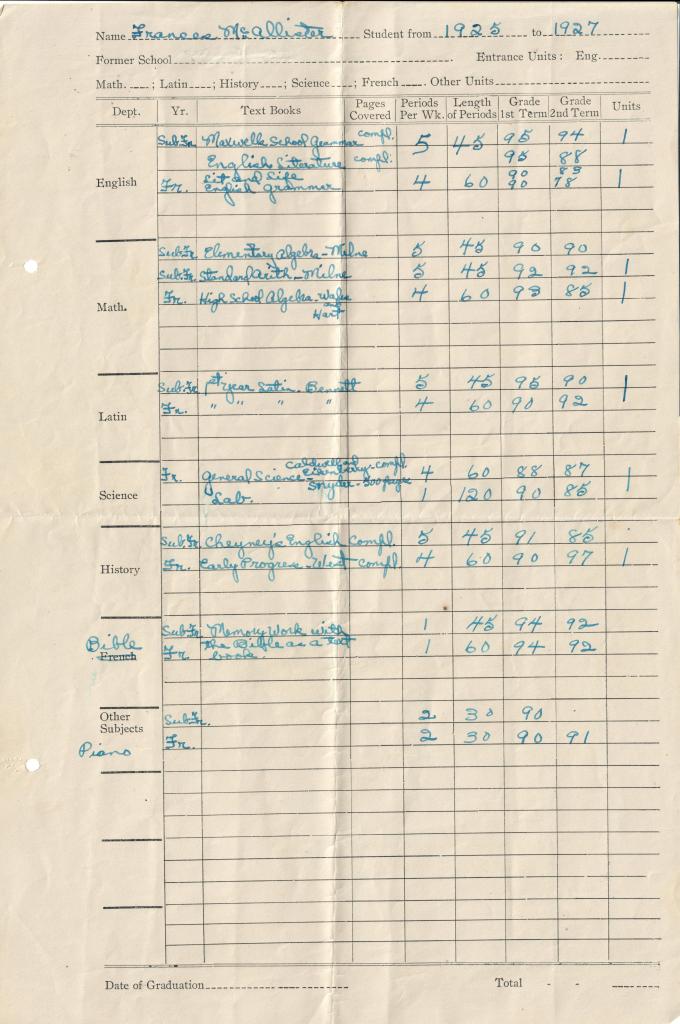 Name Frances McAllister Student from 1925 to 1927
Former School Entrance Units: Eng.
Math. ; Latin ; History ; Science ; French . Other Units
Dept. Yr. Text Books Pages Covered Periods Per Wk. Length of Periods Grade 1st Term Grade 2nd Term Units
English
Sub.Fr. Maxwells School Grammar compl. 5 45 95 94 1
English Literature compl. 95 88
Fr. Lit and Life 4 60 90 83 1
English Grammar 90 78
Math.
Sub.Fr. Elementary Algebra - Milne 5 45 90 90
Sub.Fr. Standard Arith - Milne 5 45 92 92 1
Fr. High School Algebra - 4 60 93 85 1
Hart
Latin
Sub.Fr. 1st Year Latin. Bennett 5 45 95 90 1
Fr. " " " " 4 60 90 92
Science
Fr. General Science - Caldwell and compl. 4 60 88 87 1
Snyder - 300 pages
Lab. 1 120 90 85
History
Sub.Fr. Cheyney's English Compl. 5 45 91 85
Fr. Early Progress - West Compl. 4 60 90 97 1
Bible
French
Sub.Fr. Memory Work with 1 45 94 92
Fr. the Bible as a text 1 60 94 92
book.
Other Subjects
Piano
Sub.Fr. 2 30 90
Fr. 2 30 90 91
Date of Graduation Total - -